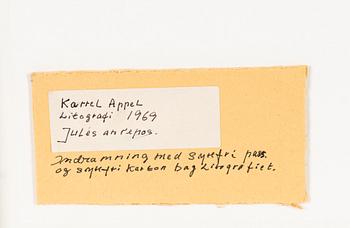 Karel Appel
Litografi 1969
Jules an repos.
Indramning med syrefri pass.
og syrefri karton bag litografiet.